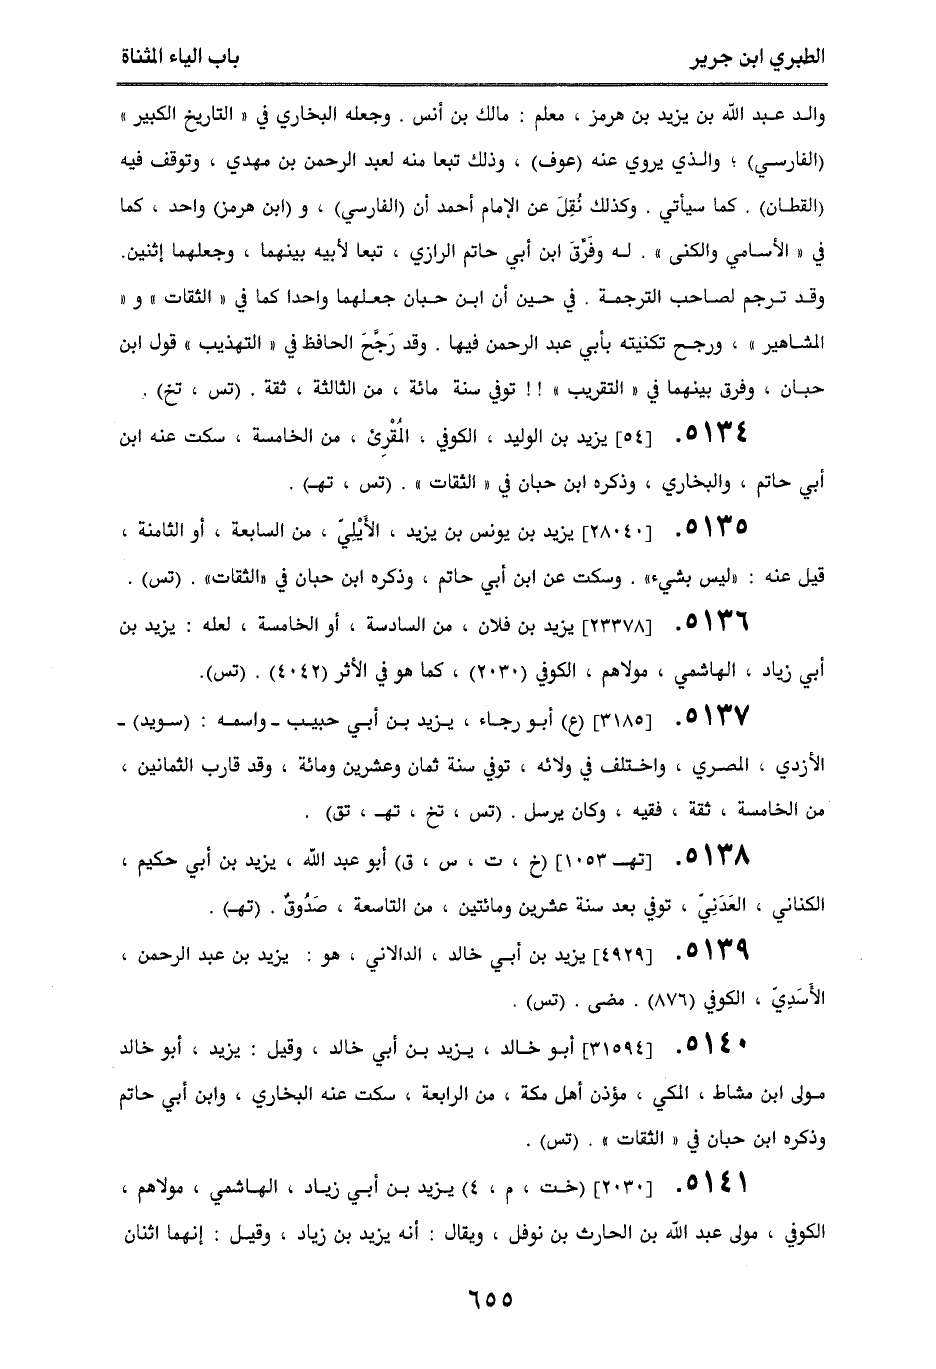 الطبري ابن جرير
باب الياء المثناة
والد عبد الله بن يزيد بن هرمز ، معلم : مالك بن أنس . وجعله البخاري في « التاريخ الكبير »
(الفارسي) ؛ والذي يروي عنه (عوف) ، وذلك تبعا منه لعبد الرحمن بن مهدي ، وتوقف فيه
(القطان) . كما سيأتي . وكذلك نُقِلَ عن الإمام أحمد أن (الفارسي) ، و (ابن هرمز) واحد ، كما
في « الأسامي والكنى » . له وفَرَّقَ ابن أبي حاتم الرازي ، تبعا لأبيه بينهما ، وجعلهما إثنين.
وقد ترجم لصاحب الترجمة . في حين أن ابن حبان جعلهما واحدا كما في « الثقات » و «
المشاهير » ، ورجح تكنيته بأبي عبد الرحمن فيها . وقد رَجَّحَ الحافظ في « التهذيب » قول ابن
حبان ، وفرق بينهما في « التقريب » !! توفي سنة مائة ، من الثالثة ، ثقة . (تس ، تخ) .
٥١٣٤. [٥٤] يزيد بن الوليد ، الكوفي ، المُقْرِئ ، من الخامسة ، سكت عنه ابن
أبي حاتم ، والبخاري ، وذكره ابن حبان في « الثقات » . (تس ، تهـ) .
٥١٣٥. [٢٨٠٤٠] يزيد بن يونس بن يزيد ، الأَيْلِيّ ، من السابعة ، أو الثامنة ،
قيل عنه : «ليس بشيء» . وسكت عن ابن أبي حاتم ، وذكره ابن حبان في «الثقات» . (تس) .
٥١٣٦. [٢٣٣٧٨] يزيد بن فلان ، من السادسة ، أو الخامسة ، لعله : يزيد بن
أبي زياد ، الهاشمي ، مولاهم ، الكوفي (٢٠٣٠) ، كما هو في الأثر (٤٠٤٢) . (تس).
٥١٣٧. [٣١٨٥] (ع) أبو رجاء ، يزيد بن أبي حبيب ـ واسمه : (سويد) ـ
الأزدي ، المصري ، واختلف في ولائه ، توفي سنة ثمان وعشرين ومائة ، وقد قارب الثمانين ،
من الخامسة ، ثقة ، فقيه ، وكان يرسل . (تس ، تخ ، تهـ ، تق) .
٥١٣٨. [تهـ ١٠٥٣] (خ ، ت ، س ، ق) أبو عبد الله ، يزيد بن أبي حكيم ،
الكناني ، العَدَنِيّ ، توفي بعد سنة عشرين ومائتين ، من التاسعة ، صَدُوقٌ . (تهـ) .
٥١٣٩. [٤٩٢٩] يزيد بن أبي خالد ، الدالاني ، هو : يزيد بن عبد الرحمن ،
الأَسَدِيّ ، الكوفي (٨٧٦) . مضى . (تس) .
٥١٤٠. [٣١٥٩٤] أبو خالد ، يزيد بن أبي خالد ، وقيل : يزيد ، أبو خالد
مولى ابن مشاط ، المكي ، مؤذن أهل مكة ، من الرابعة ، سكت عنه البخاري ، وابن أبي حاتم
وذكره ابن حبان في « الثقات » . (تس) .
٥١٤١. [٢٠٣٠] (خت ، م ، ٤) يزيد بن أبي زياد ، الهاشمي ، مولاهم ،
الكوفي ، مولى عبد الله بن الحارث بن نوفل ، ويقال : أنه يزيد بن زياد ، وقيل : إنهما اثنان
٦٥٥